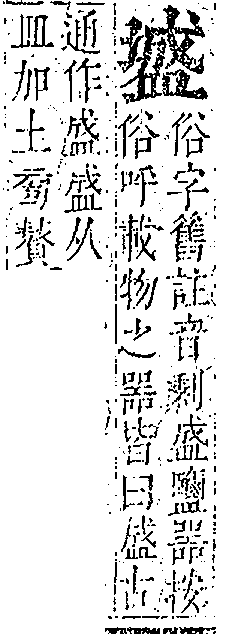 墭
俗字舊註音剩盛鹽器按
俗呼載物之器皆曰盛古
通作盛盛从
皿加土贅